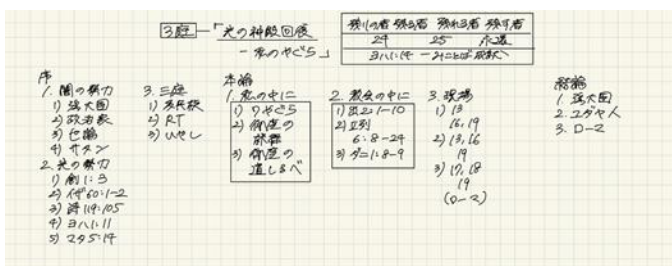 3庭 ー「光の神殿回復
ー 私のやぐら」
残りの者 残る者 残れる者 残す者
24 25 永遠
ヨハ1:14 ー みことば成就
序
1. 闇の勢力
1) 強大国
2) 政治家
3) 亡霊
4) サタン
2. 光の勢力
1) 創1:3
2) イザ60:1-2
3) 詩119:105
4) ヨハ1:11
5) マタ5:14
3. 三庭
1) 多民族
2) RT
3) いやし
本論
1. 私の中に
1) りやぐら
2) 御座の
旅程
3) 御座の
道しるべ
2. 教会の中に
1) 出2:1-10
2) Ⅱ列
6:8-24
3) ダニ1:8-9
3. 現場
1) 13
16, 19
2) 13, 16
19
3) 17, 18
19
(ローマ)
結論
1. 強大国
2. ユダヤ人
3. ローマ